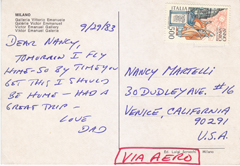 MILANO
Galleria Vittorio Emanuele
Galerie Victor Emanuel
Victor Emanuel Gallery
Viktor Emanuel Galerie
9/29/83
ITALIA
DEAR NANCY,
TOMORROW I FLY
HOME - SO BY TIME YOU
GET THIS I SHOULD
BE HOME - HAD A
GREAT TRIP -
LOVE
DAD
NANCY MARTELLI
30 DUDLEY AVE. #16
VENICE, CALIFORNIA
90291
U.S.A.
VIA AEREO
Milano